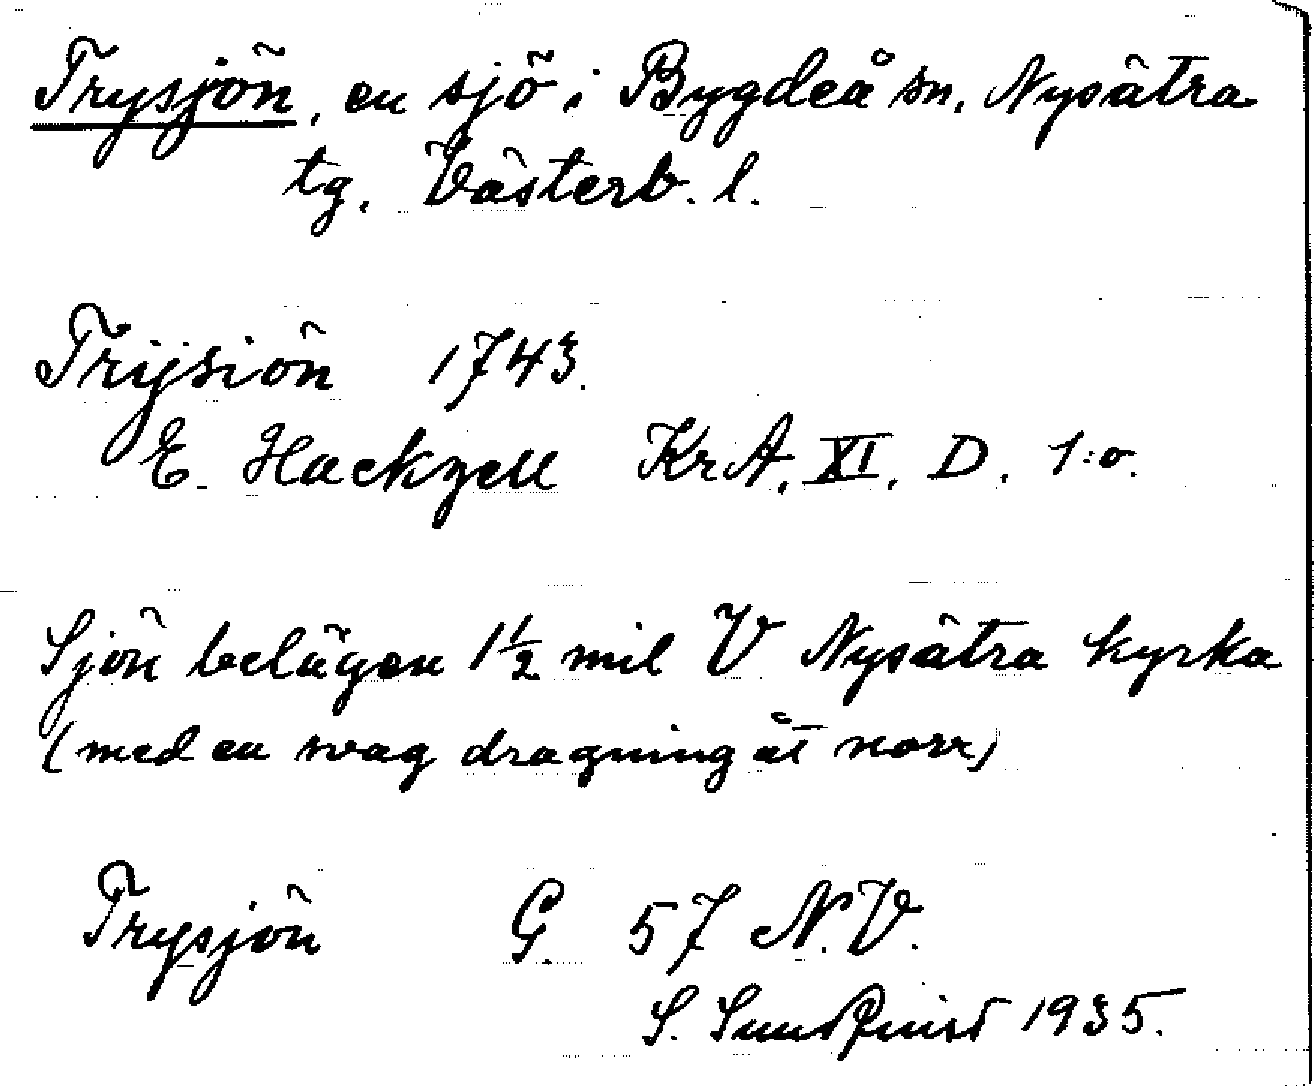 Trysjön, en sjö i Bygdeå sn, Nysätra
tg. Västerb. l.
Trijsiön 1743.
E. Hackzell KrA. XI. D. 1:o.
Sjön belägen 1½ mil V Nysätra kyrka
(med en svag dragning åt norr)
Trysjön G. 57 N.V.
S. Sundquist 1935.